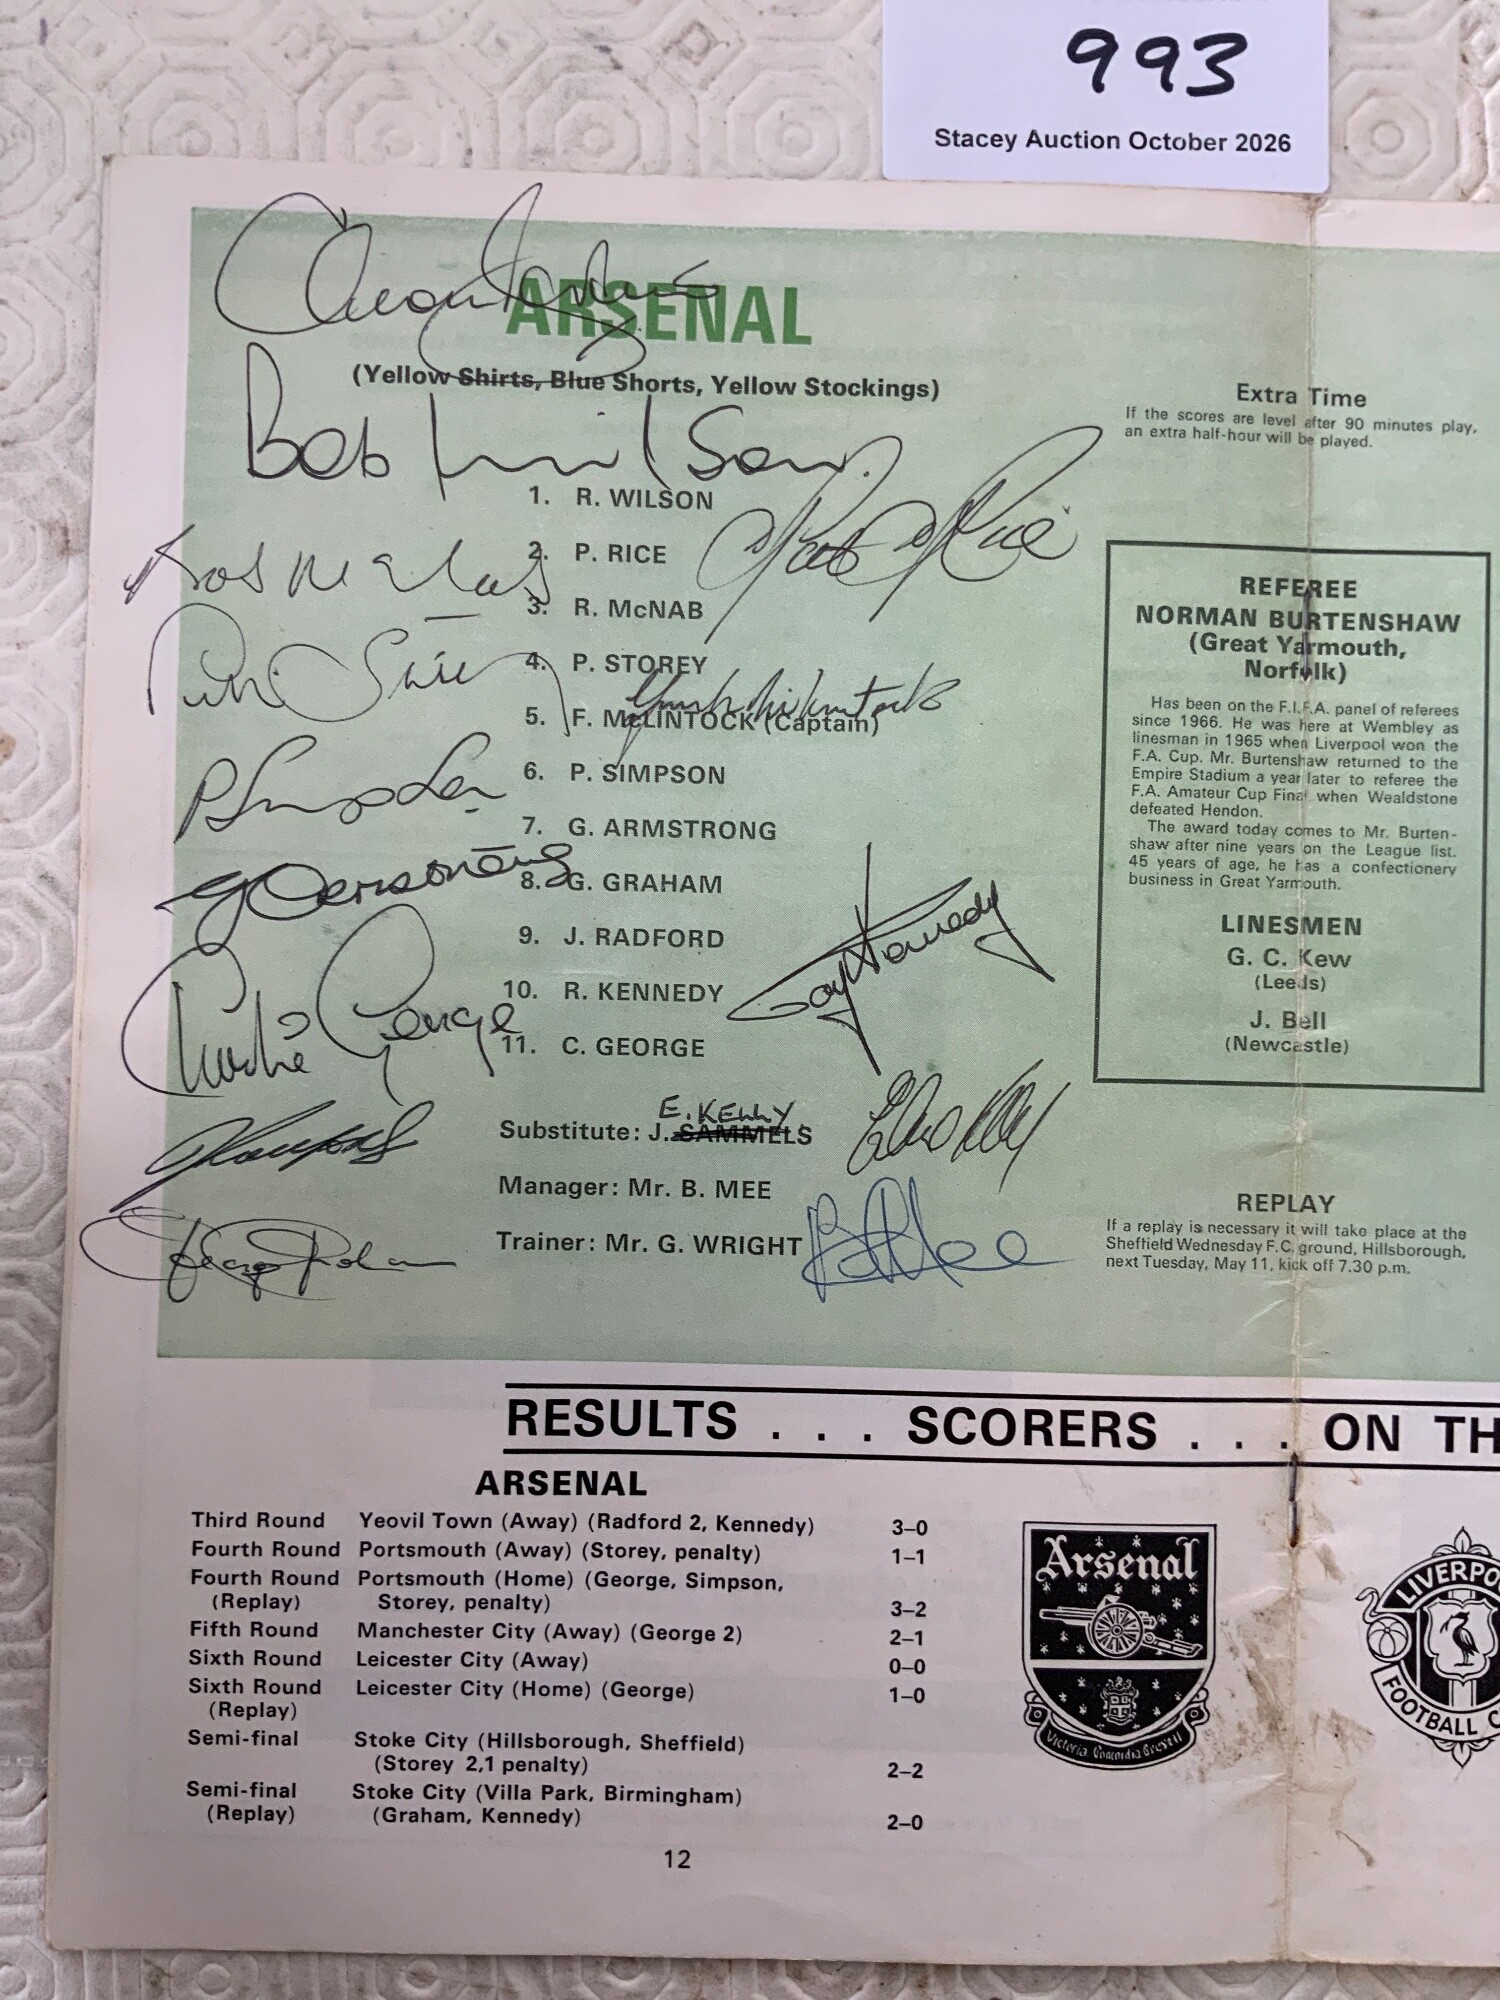 993
Stacey Auction October 2026
ARSENAL
(Yellow Shirts, Blue Shorts, Yellow Stockings)
Bob Wilson
1. R. WILSON
2. P. RICE
Pat Rice
3. R. McNAB
Bob McNab
4. P. STOREY
Peter Storey
5. F. McLINTOCK (Captain)
Frank McLintock
6. P. SIMPSON
P Simpson
7. G. ARMSTRONG
G Armstrong
8. G. GRAHAM
9. J. RADFORD
10. R. KENNEDY
Ray Kennedy
11. C. GEORGE
Charlie George
E. KELLY
Substitute: J. SAMMELS
Eddie Kelly
Manager: Mr. B. MEE
B Mee
Trainer: Mr. G. WRIGHT
George Graham
Extra Time
If the scores are level after 90 minutes play,
an extra half-hour will be played.
REFEREE
NORMAN BURTENSHAW
(Great Yarmouth,
Norfolk)
Has been on the F.I.F.A. panel of referees
since 1966. He was here at Wembley as
linesman in 1965 when Liverpool won the
F.A. Cup. Mr. Burtenshaw returned to the
Empire Stadium a year later to referee the
F.A. Amateur Cup Final when Wealdstone
defeated Hendon.
The award today comes to Mr. Burten-
shaw after nine years on the League list.
45 years of age, he has a confectionery
business in Great Yarmouth.
LINESMEN
G. C. Kew
(Leeds)
J. Bell
(Newcastle)
REPLAY
If a replay is necessary it will take place at the
Sheffield Wednesday F.C. ground, Hillsborough,
next Tuesday, May 11, kick off 7.30 p.m.
RESULTS . . . SCORERS . . . ON TH
ARSENAL
Third Round Yeovil Town (Away) (Radford 2, Kennedy) 3–0
Fourth Round Portsmouth (Away) (Storey, penalty) 1–1
Fourth Round Portsmouth (Home) (George, Simpson,
(Replay) Storey, penalty) 3–2
Fifth Round Manchester City (Away) (George 2) 2–1
Sixth Round Leicester City (Away) 0–0
Sixth Round Leicester City (Home) (George) 1–0
(Replay)
Semi-final Stoke City (Hillsborough, Sheffield)
(Storey 2,1 penalty) 2–2
Semi-final Stoke City (Villa Park, Birmingham)
(Replay) (Graham, Kennedy) 2–0
Arsenal
Victoria Concordia Crescit
LIVERPO
FOOTBALL C
12